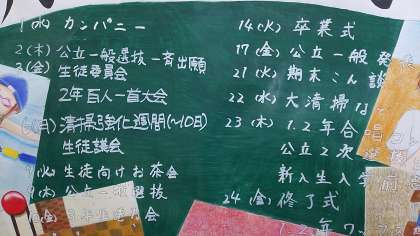 1(水) カンパニー
2(木) 公立一般選抜一斉出願
3(金) 生徒委員会
2年百人一首大会
(月) 清掃強化週間(〜10日)
生徒議会
(水) 生徒向けお茶会
(木) 公立一般選抜
(金)
会
14(火) 卒業式
17(金) 公立一般発
21(火) 期末こん談
22(水) 大清掃
23(木) 1.2年合唱
公立2次選抜
新入生入学前
24(金) 修了式
1.2年ワ